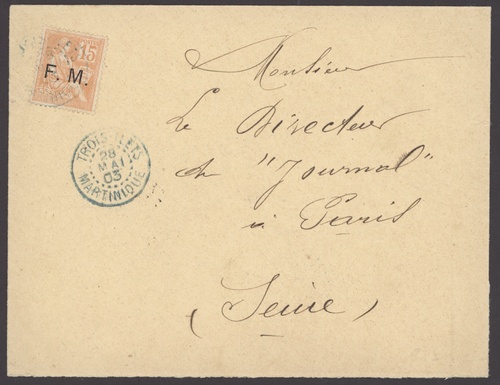 15
F. M.
TROIS-ILETS
28
MAI
03
MARTINIQUE
Monsieur
Le Directeur
du "Journal"
à Paris
(Seine)